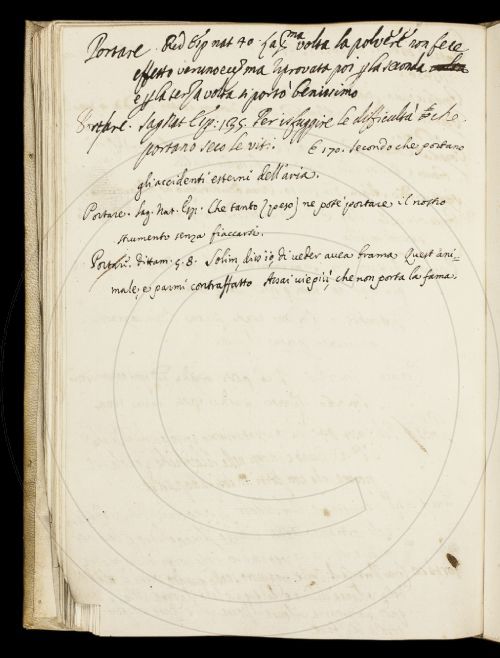 Portare. Red Esp nat 40. La pma volta la polvere non fece
effetto veruno ec. ma riprovata poi p la seconda
e p la terza volta si portò benissimo
Portare. Sag Nat Esp. 135. Per isfuggire le difficultà che
portano seco le viti. E 170. secondo che portano
gli accidenti esterni dell'aria.
Portare. Sag. Nat. Esp. Che tanto [peso] ne potè portare il nostro
strumento senza fiaccarsi.
Portare. Dittam. 5. 8. Solin diss'io, di veder avea brama Quest'ani=
male, e parmi contraffatto Assai viepiù, che non porta la fama